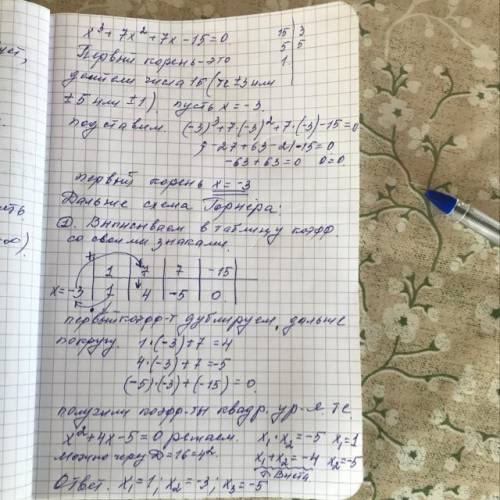 x³+7x²+7x-15=0
15 | 3
5 | 5
1
Первый корень-это
делители числа 15 (±3 или
±5 или ±1). пусть x=-3.
подставим. (-3)³+7·(-3)²+7·(-3)-15=0
-27+63-21-15=0
-63+63=0 0=0
первый корень x=-3
Дальше схема Горнера:
Выписываем в таблицу коэфф.
со своими знаками.
1 | 7 | 7 | -15
x=-3 | 1 | 4 | -5 | 0
первый коэфф-т дублируем, дальше
по кругу. 1·(-3)+7=4
4·(-3)+7=-5
(-5)·(-3)+(-15)=0
получили коэфф-ты квадр. ур-я те
x²+4x-5=0 решаем. x₁·x₂=-5 x₁=1
можно через D=16=4² x₁+x₂=-4 x₂=-5
т. Виета
Ответ. x₁=1; x₂=-3; x₃=-5